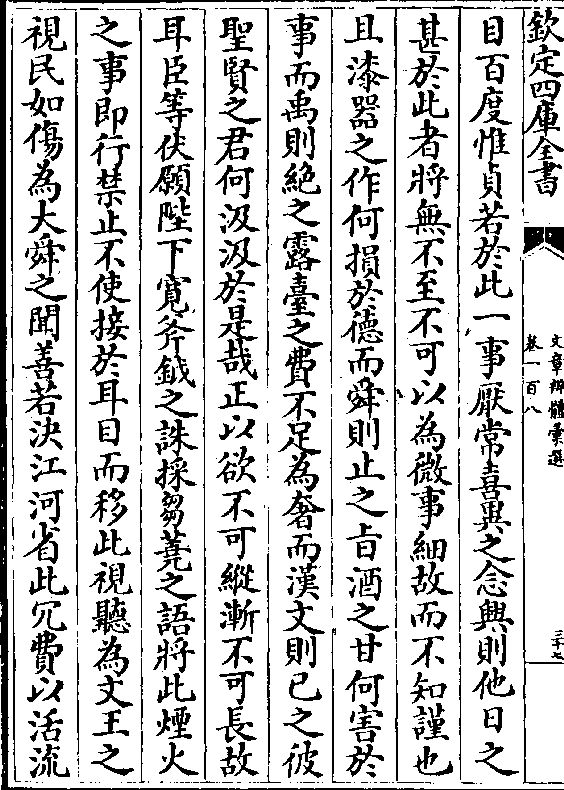 欽定四庫全書
文章辨體彙選
卷一百八
三十七
目百度惟貞若於此一事厭常喜異之念興則他日之
甚於此者將無不至不可以為微事細故而不知謹也
且漆器之作何損於德而舜則止之旨酒之甘何害於
事而禹則絶之露臺之費不足為奢而漢文則已之彼
聖賢之君何汲汲於是哉正以欲不可縱漸不可長故
耳臣等伏願陛下寛斧鉞之誅採芻蕘之語將此煙火
之事即行禁止不使接於耳目而移此視聽為文王之
視民如傷為大舜之聞善若決江河省此冗費以活流